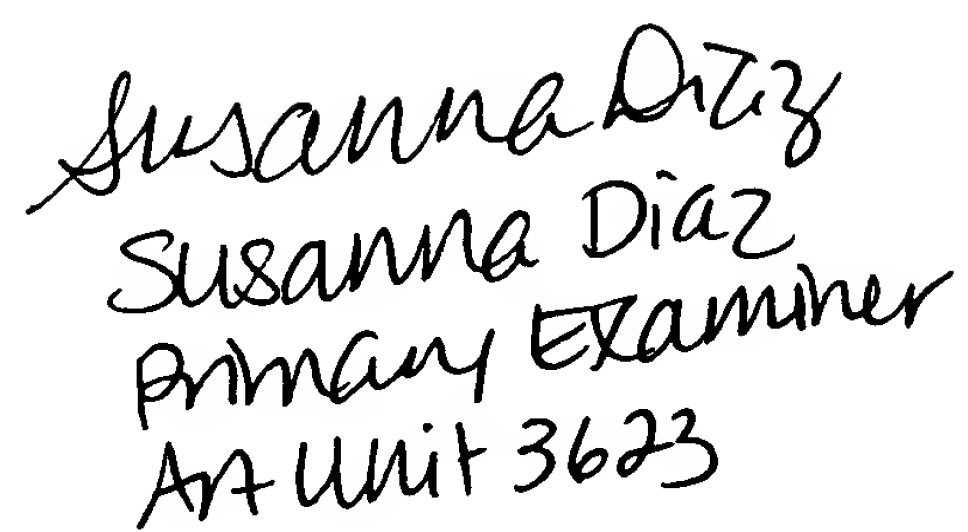 Susanna Diaz
Susanna Diaz
Primary Examiner
Art Unit 3623